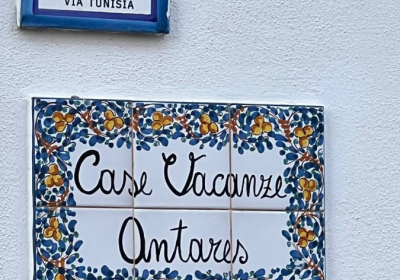 VIA TUNISIA
Case Vacanze
Antares